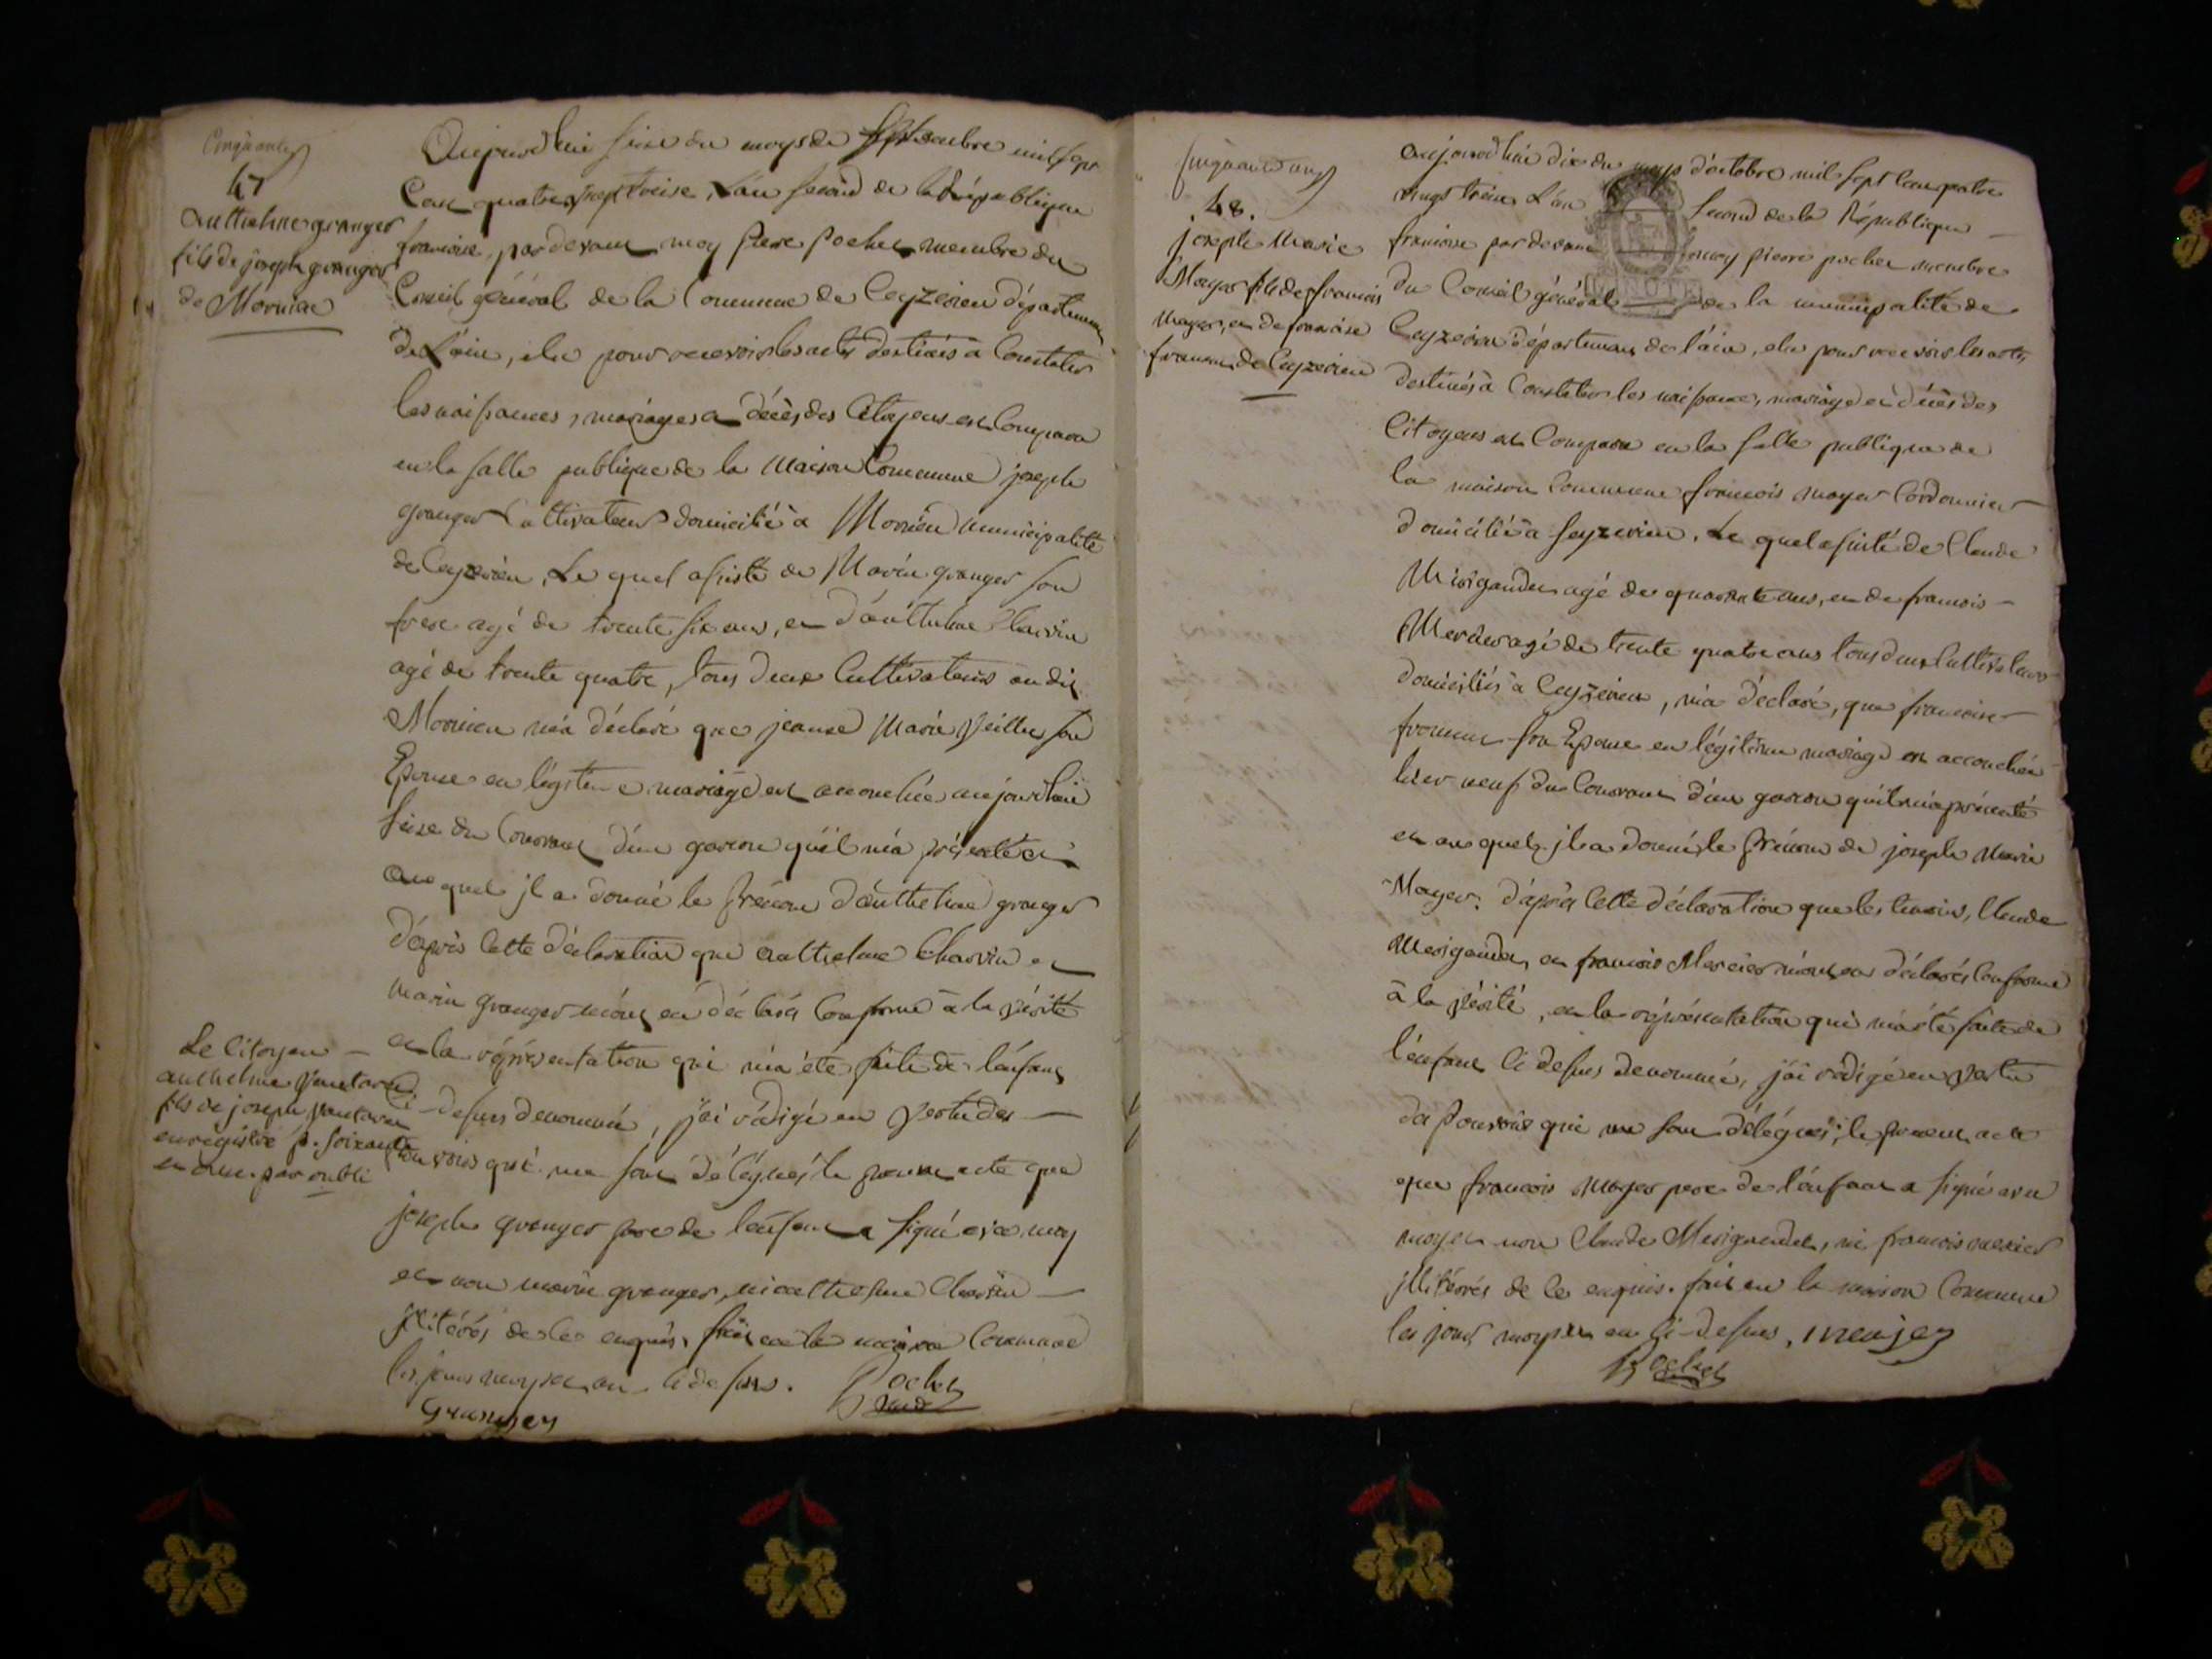 Cinquante
47
Anthelme granger
fils de joseph granger
de Mornieu
Aujourd'hui seise du moys de Septembre mil sept
Cent quatrevingt treise, L'an second de la République
francoise, par devant moy pierre pochet membre du
Conseil général de la Commune de Ceyzerieu département
De L'ain, elu pour recevoir les actes destinés à Constater
les naissances, mariages et décès des Citoyens est Comparu
en la salle publique de la Maison Commune joseph
granger Cultivateur domicilié à Mornieu municipalité
de Ceyzerieu, Le quel assisté de Marin granger son
frere agé de trente six ans, et d'anthelme Charvin
agé de trente quatre, tous deux Cultivateurs au dit
Mornieu m'a déclaré que jeanne Marie son
Epouse en légitime mariage est accouchée aujourdhui
seise du Courant d'un garcon qu'il m'a présenté et
au quel jl a donné le prénom d'anthelme granger
d'après Cette déclaration que anthelme Charvin et
marin granger m'ont en déclaré Conforme à la vérité
et la représentation qui m'a été faite de l'enfant
Ci-dessus denommé, j'ai rédigé en vertu des
pouvoirs qui me sont délégués le present acte que
joseph granger pere de l'enfant a signé avec moy
et non marin granger, ni anthelme Charvin
jllitérés de ce enquis, fait en la maison Commune
les jours moys et an ci dessus. Pochet
Granger
Le Citoyen
anthelme
fils de joseph
enregistré p. soixante
et une par oubli
Cinquante un
48.
joseph Marie
Mayer fils de francois
Mayer, et de francoise
de Ceyzerieu
aujourd'hui dix du moys d'octobre mil sept cent quatre
vingt treise L'an second de la République
francoise par devant moy pierre pochet membre
du Conseil général de la municipalité de
Ceyzerieu département de l'ain, elu pour recevoir les actes
destinés à Constater les naissance, mariage et décès des
Citoyens est Comparu en la salle publique de
la maison Commune francois mayer Cordonnier
domicilié à Ceyzerieu, Le quel assisté de Claude
agé de quarante ans, et de francois
Mercier agé de trente quatre ans tous deux Cultivateurs
domiciliés à Ceyzerieu, m'a déclaré, que francoise
son Epouse en légitime mariage est accouchée
hier neuf du Courant d'un garcon qu'il m'a présenté
et au quel jl a donné le prénom de joseph Marie
Mayer. d'après Cette déclaration que les temoins, Claude
et francois Mercier m'ont en déclaré Conforme
à la vérité, et la représentation qui m'a été faite de
l'enfant Ci dessus denommé, j'ai rédigé en vertu
des Pouvoir qui me sont délégués, le present acte
que francois mayer pere de l'enfant a signé avec
moy et non Claude ni francois mercier
jllitérés de ce enquis. fait en la maison Commune
les jour moys et an ci-dessus,
Pochet